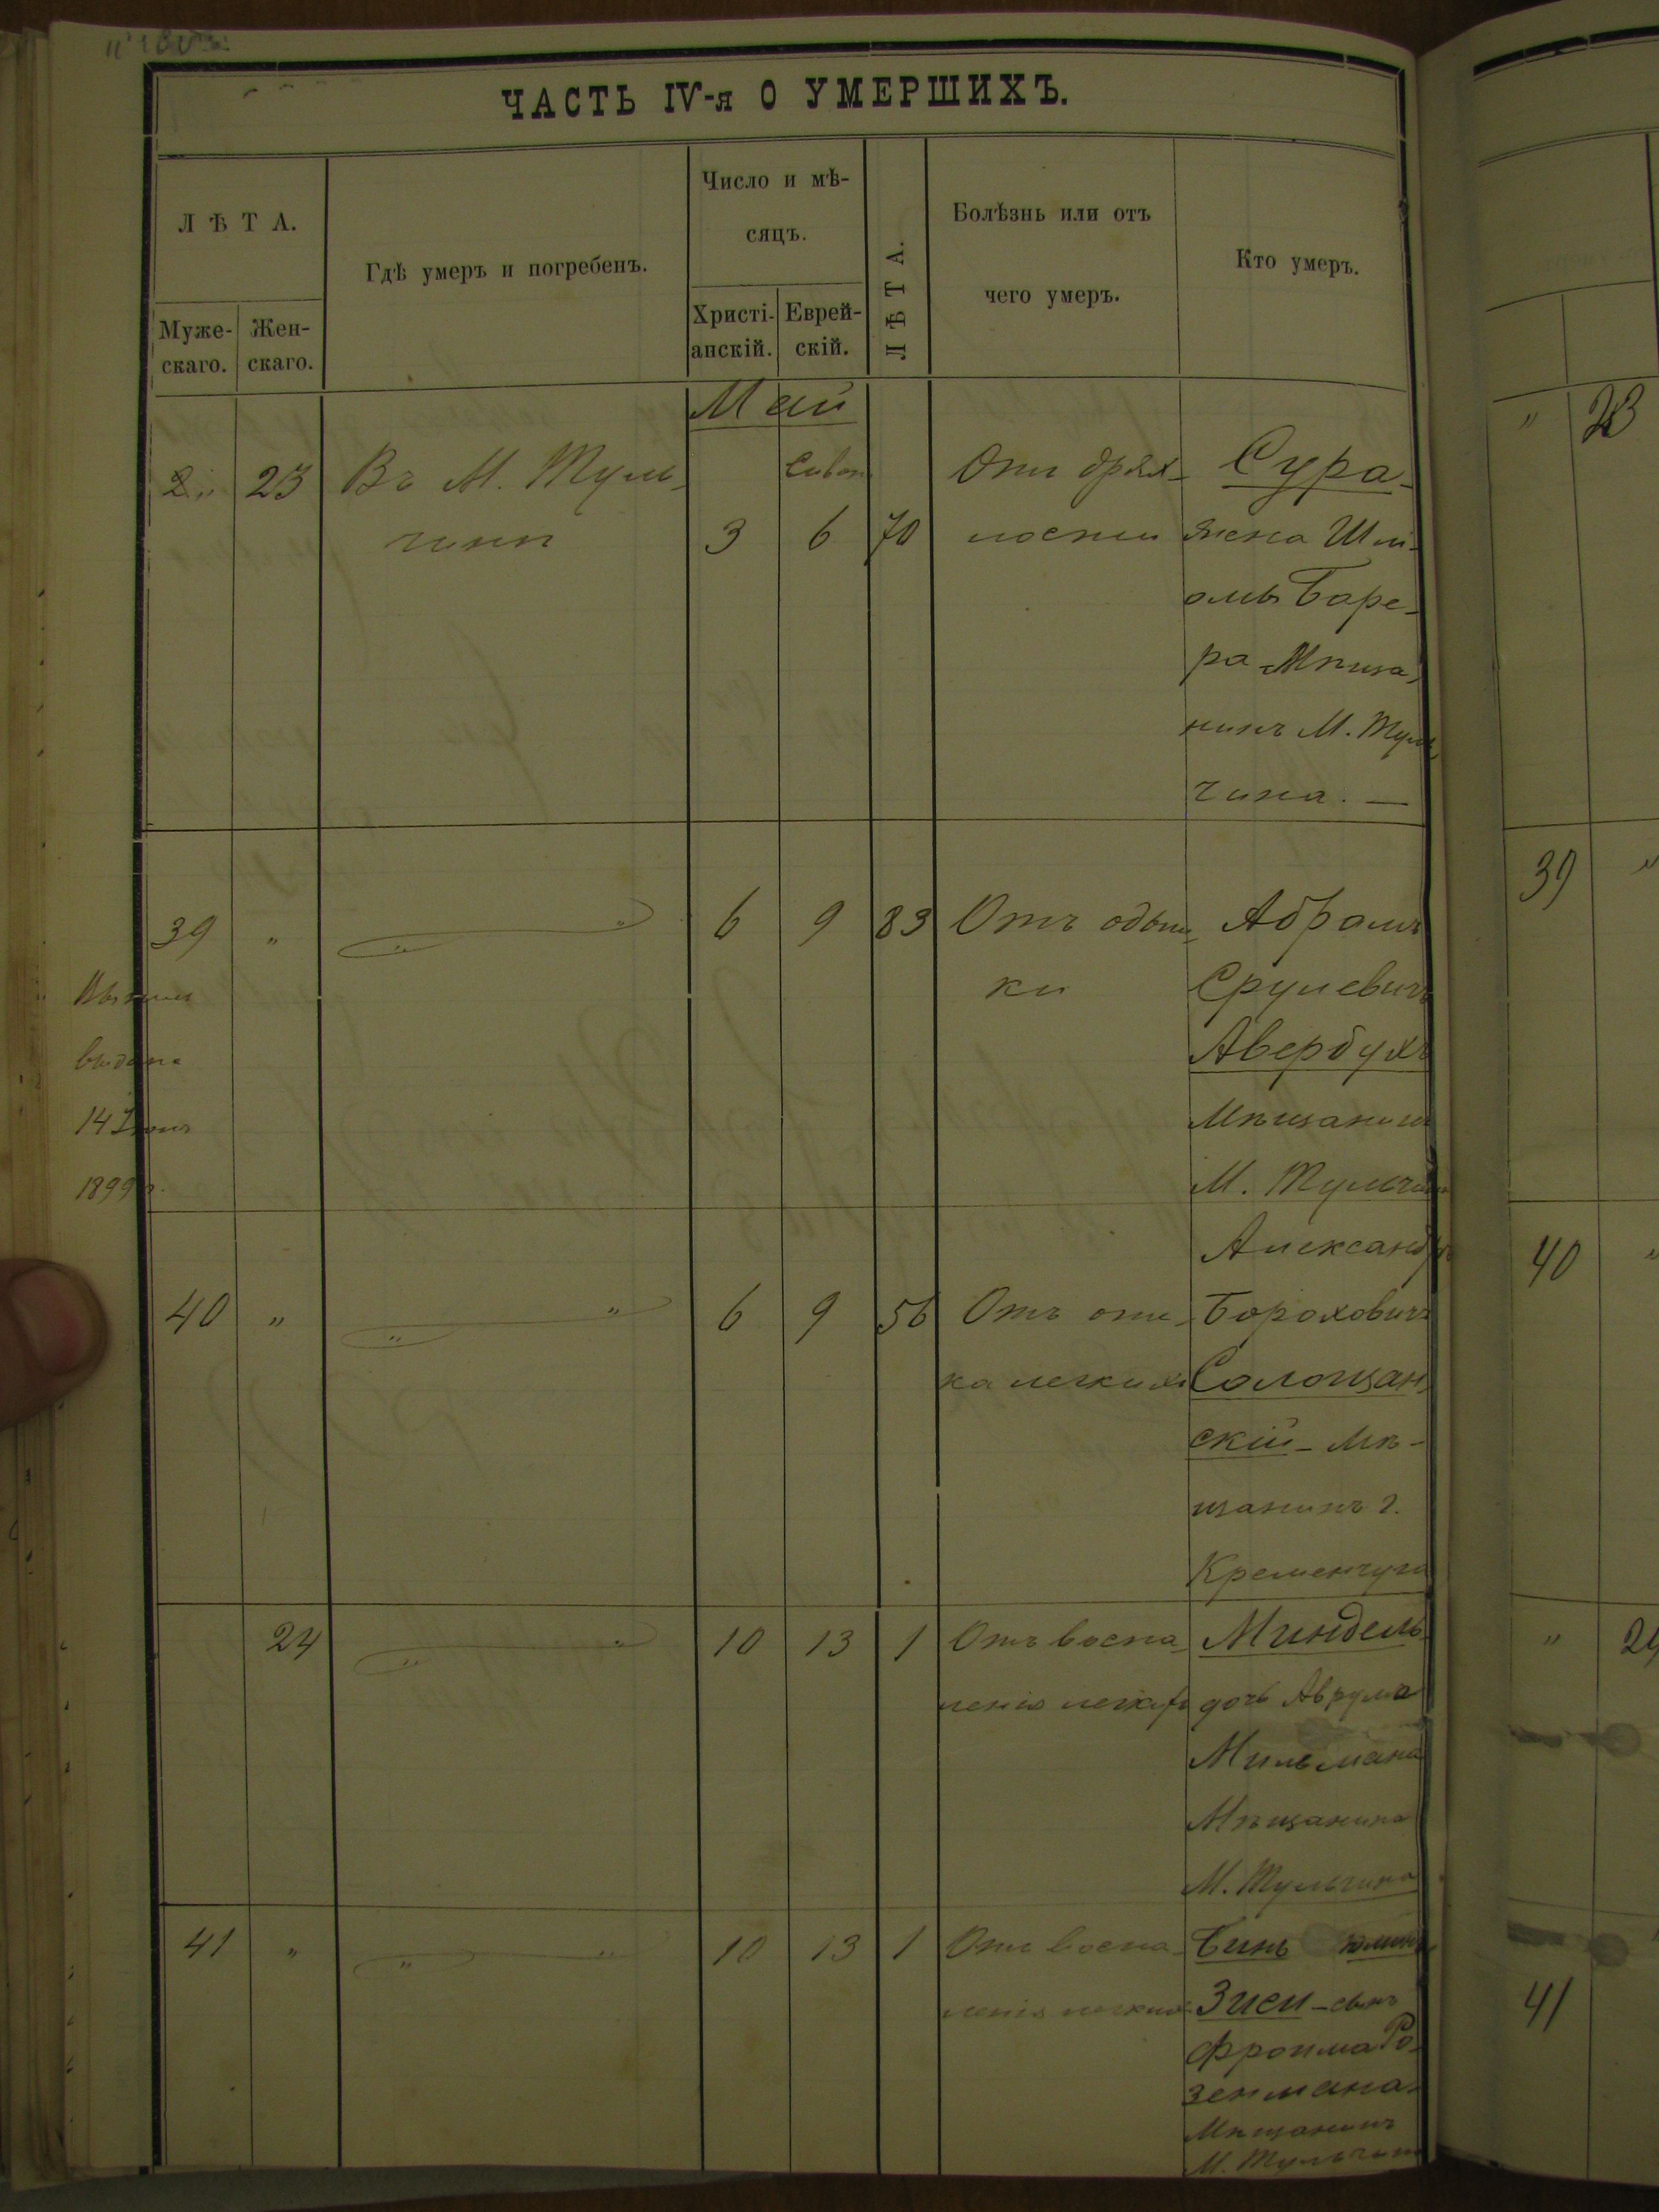 ЧАСТЬ IV-я О УМЕРШИХЪ.
ЛѢТА.
Муже-
скаго.
Жен-
скаго.
Гдѣ умеръ и погребенъ.
Число и мѣ-
сяцъ.
Христі-
анскій.
Еврей-
скій.
ЛѢТА.
Болѣзнь или отъ
чего умеръ.
Кто умеръ.
Май
23
Въ М. Туль-
чинѣ
Сиван
3
6
70
Отъ дрях-
лости
Сура-
жена Шмі-
омъ Баре-
ра Мѣща-
нинъ М. Туль-
чина. —
39
"
" "
6
9
83
Отъ одыш-
ки
Абрамъ
Срулевичъ
Авербухъ
Мѣщанинъ
М. Тульчина
выдана
14 Іюня
1899 г.
40
"
" "
6
9
56
Отъ оте-
ка легкихъ
Александръ
Бороховичъ
Солощан-
скій - Мѣ-
щанинъ г.
Кременчуга
24
" "
10
13
1
Отъ воспа-
ленія легких
Миндель-
дочь Аврума
Мильмана
Мѣщанина
М. Тульчина
41
"
" "
10
13
1
Отъ воспа-
ленія легкихъ
Бинь
Зиси - сынъ
Фроима Ро-
зенмана-
Мѣщанинъ
М. Тульчина
" 23
39 "
40 "
" 24
41